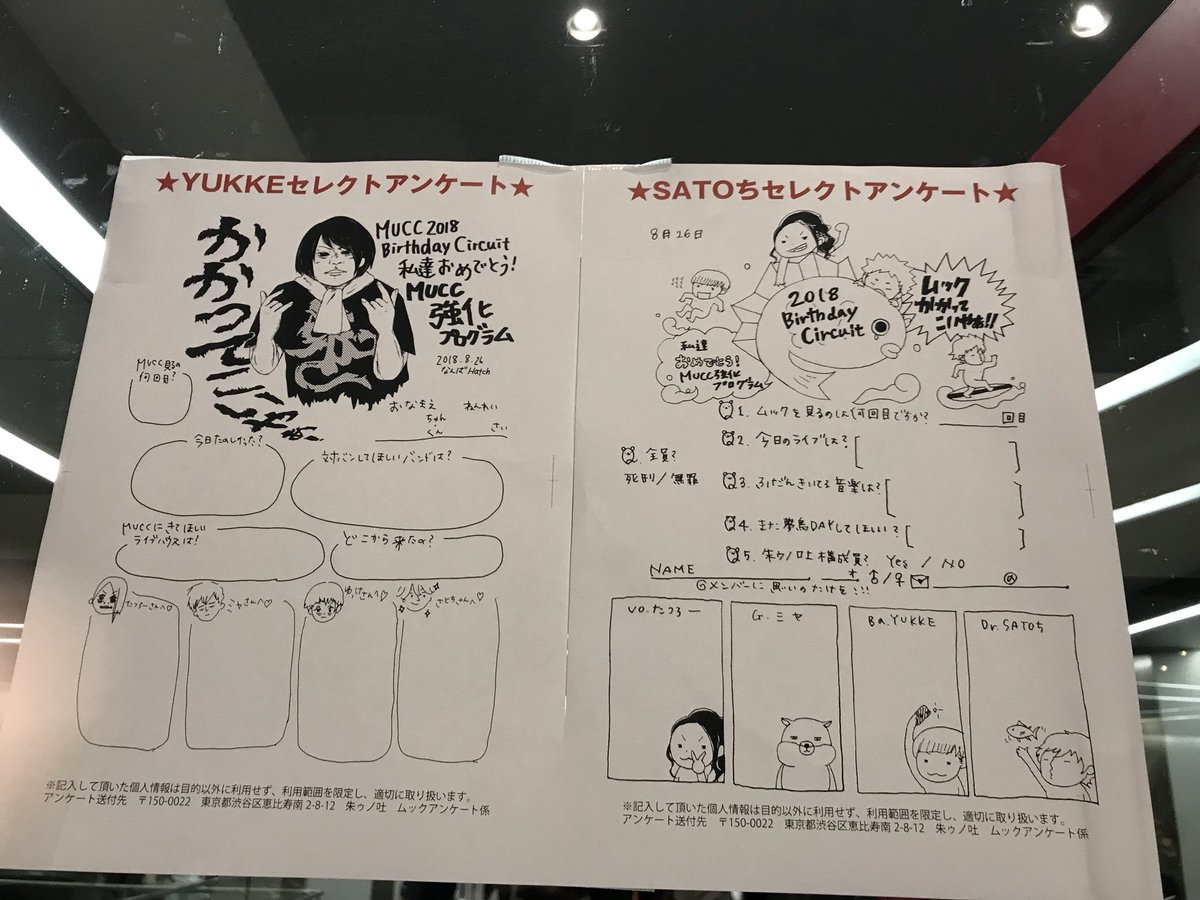 ★YUKKEセレクトアンケート★
かかってこいやぁ
MUCC 2018
Birthday Circuit
私達おめでとう!
MUCC
強化
プログラム
2018.8.26
なんばHatch
MUCC見るの
何回目?
おなまえ
ちゃん
・
くん
ねんれい
さい
今日たのしかった?
対バンしてほしいバンドは?
MUCCにきてほしい
ライブハウスは?
どこから来たの?
たつろーさんへ♡
ミヤさんへ♡
ゆっけさんへ♡
さとちさんへ♡
※記入して頂いた個人情報は目的以外に利用せず、利用範囲を限定し、適切に取り扱います。
アンケート送付先 〒150-0022 東京都渋谷区恵比寿南 2-8-12 朱ゥノ吐 ムックアンケート係
★SATOちセレクトアンケート★
8月26日
2018
Birthday
Circuit
ムック
かかって
こいやぁ!!
私達
おめでとう!
MUCC強化
プログラム
1. ムックを見るのは何回目ですか?
回目
2. 今日のライブは?
Q. 全員?
死刑/無罪
3. ふだんきいてる音楽は?
4. また夢烏DAYしてほしい?
5. 朱ゥノ吐構成員? Yes / NO
NAME
才 ♂/♀
@
◎メンバーに思いのたけを!!!
Vo.たつろー
G.ミヤ
Ba.YUKKE
Dr.SATOち
※記入して頂いた個人情報は目的以外に利用せず、利用範囲を限定し、適切に取り扱います。
アンケート送付先 〒150-0022 東京都渋谷区恵比寿南 2-8-12 朱ゥノ吐 ムックアンケート係